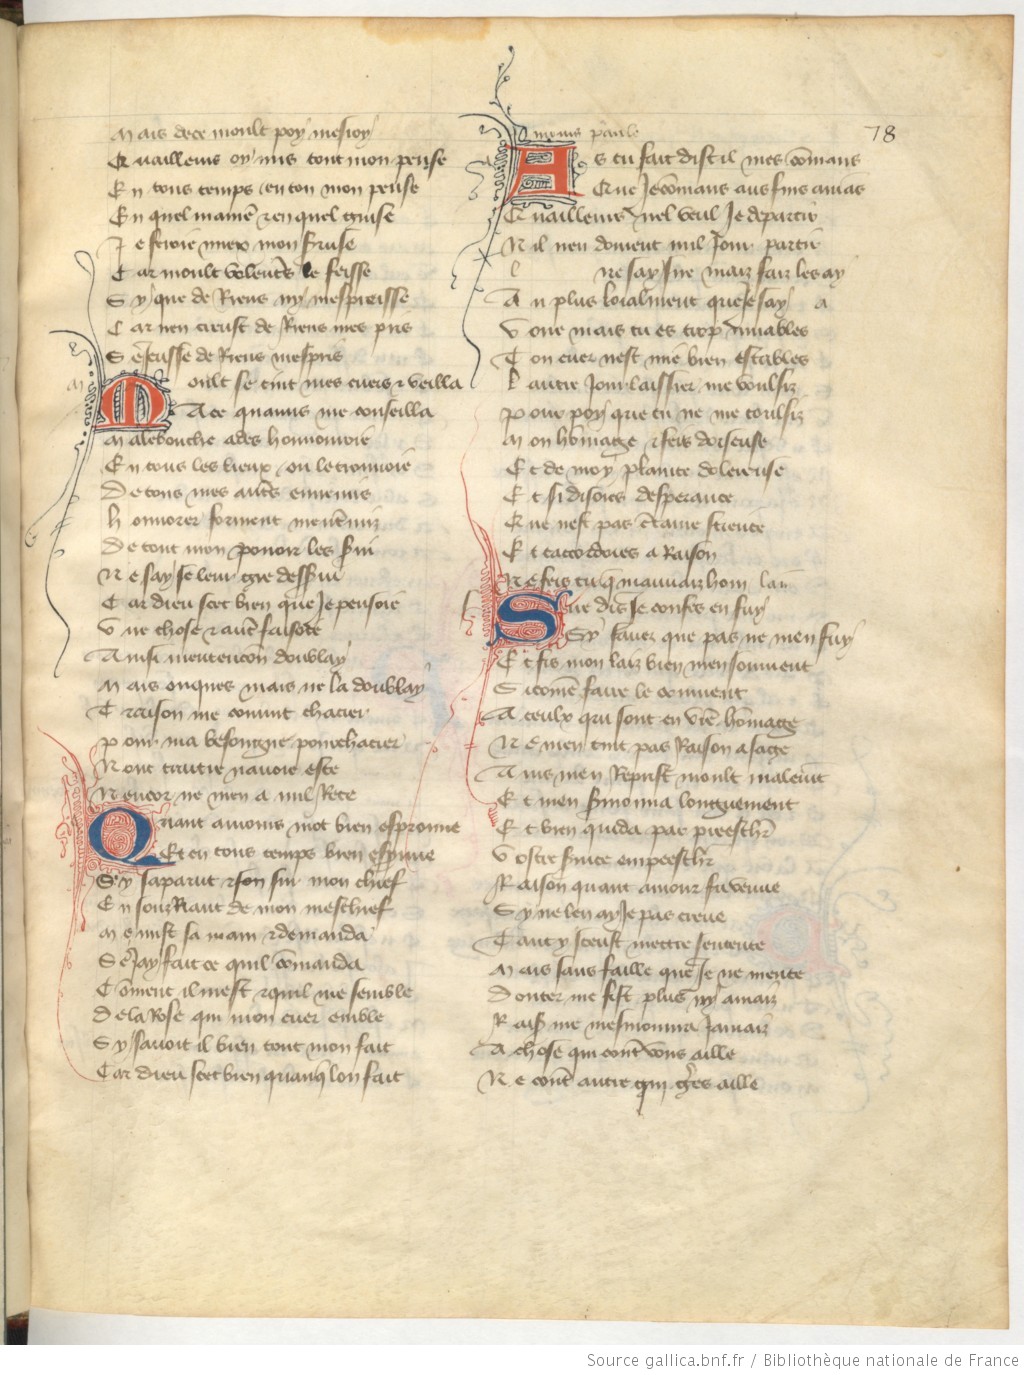 78
Mais de ce moult poy mesioy
Et vailleurs oy mis tout mon pense
En tous temps en ton mon pense
En quel maniere & en quel guise
Je feroie miex mon seruise
Car moult volenters le feisse
Sy que de Riens ny mespreisse
Car nen creust de Riens mes pris
Se Jeusse de Riens mespris
Moult se tint mes cuers & veilla
A ce quamis me conseilla
Malebouche ades honnouroie
En tous les lieux ou le trouuoie
De tous mes autres ennemis
honnorer forment mentremiz
De tout mon pouoir les serui
Ne say se leur gre desserui
Car dieu scet bien que Je pensoie
Vne chose & autre faisoie
Ainsi mentencion doublay
Mais onques mais ne la doublay
Traison me conuint chacier
pour ma besongne pourchacier
Nonc traitre nauoie este
Nencor ne men a nul Rete
Quant amours mot bien esprouue
Et en tous temps bien esprouue
Sy saparut & son sur mon chief
En souzRiant de mon meschief
Me mist sa main & demanda
Se Jay fait ce quil commanda
Comment il mest & quil me semble
De la Rose qui mon cuer emble
Sy sauoit il bien tout mon fait
Car dieu scet bien quanques lon fait
Amours parle
As tu fait dist il mes commans
Que Je commans aus fins amans
Et vailleurs nel veul Je departir
N il nen doiuent nul Jour partir
ne say sire maiz faiz les ay
Au plus loialment que Je say
Voire mais tu es trop muables
Ton cuer nest mie bien estables
L autre Jour laissier me voulsiz
pour poy que tu ne me toulsiz
Mon hommage & feis doiseuse
Et de moy plainte dolereuse
Et si disoies desperance
Que nest pas certaine science
Et taccordoies a Raison
Ne feis tu que mauuaiz hom
Sire dis Je confes en fuy
Sy sauez que pas ne men fuy
Et fis mon laiz bien men souuient
Si comme faire le conuient
A ceulx qui sont en vostre hommage
Ne men tint pas Raison a sage
Ains men Reprist moult malement
Et men sermonna longuement
Et bien cuida par preeschier
Vostre seruice empeeschier
Raison quant amour fu venue
Sy ne len ay Je pas creue
Tant y sceust mettre sentente
Mais sans faille que Je ne mente
Douter me fist plus ny amaiz
Raison ne mesmouura Jamaiz
A chose qui contre vous aille
Ne contre autre qui gueres aille